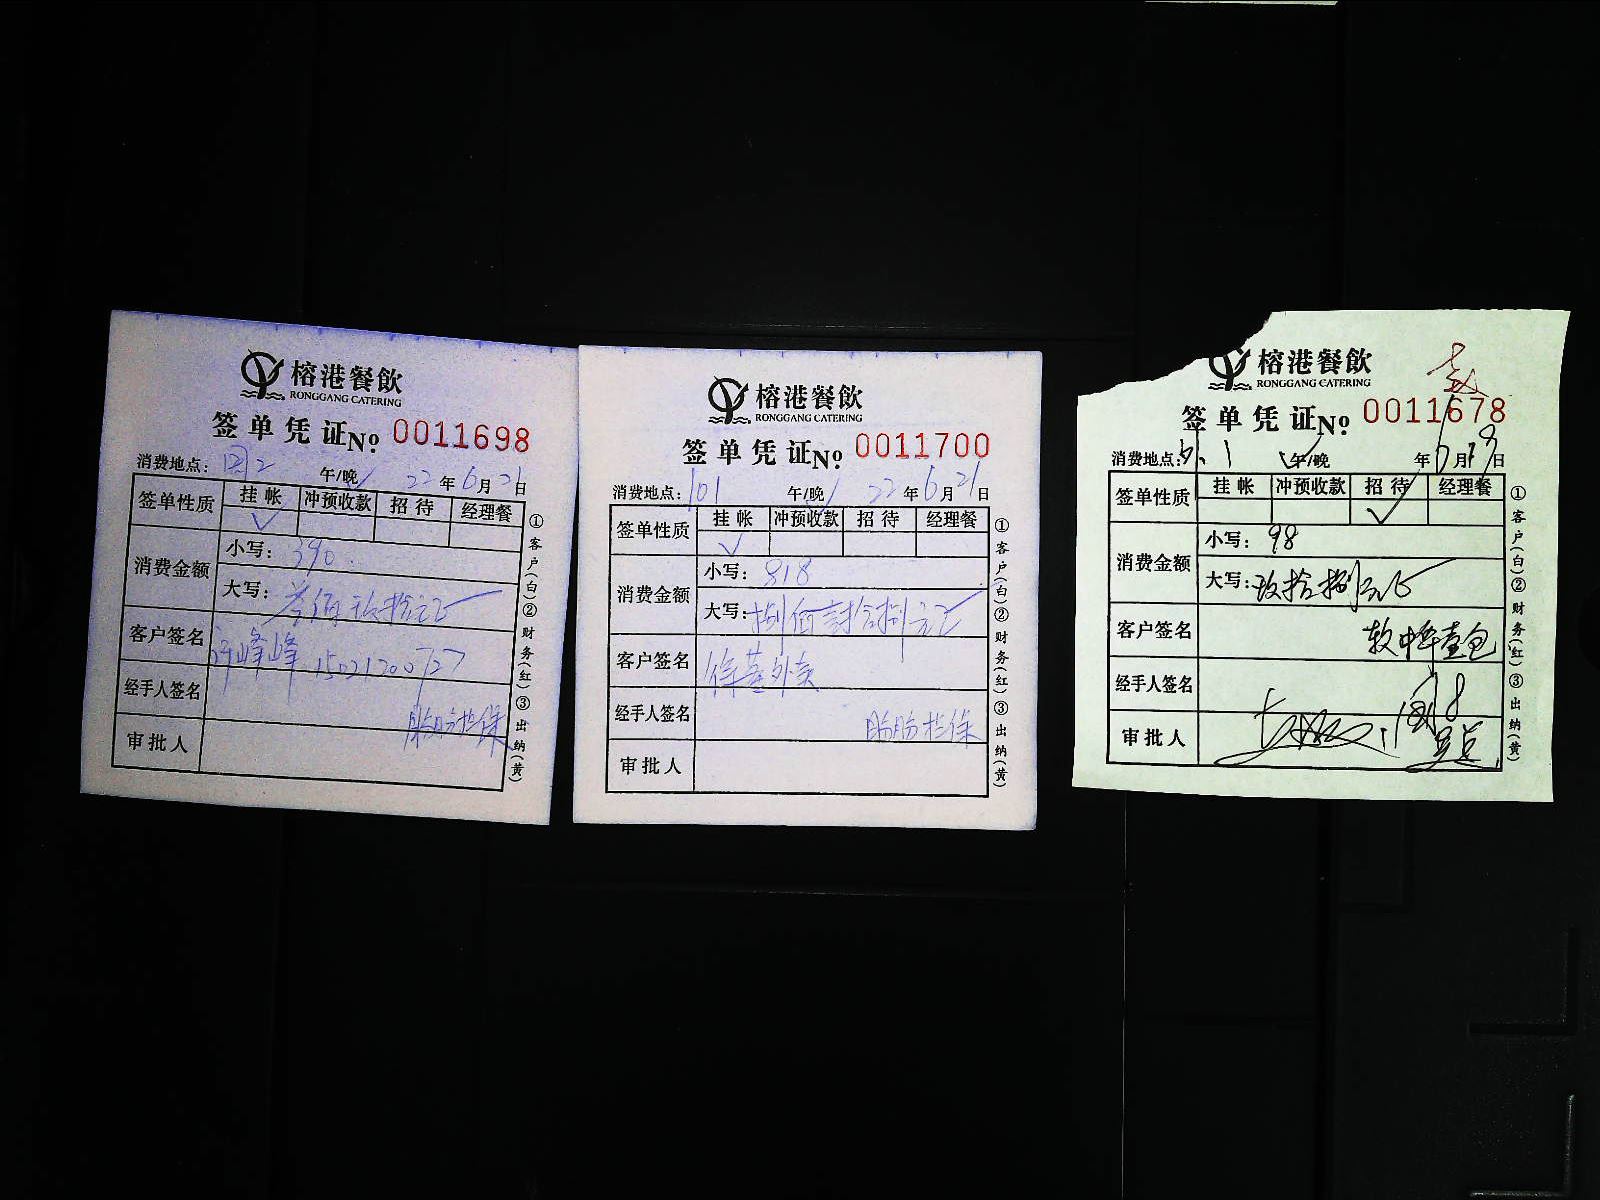 榕港餐飲
RONGGANG CATERING
签单凭证 No. 0011698
消费地点: 团2 午/晚 22年6月21日
签单性质 挂帐 冲预收款 招待 经理餐
消费金额 小写: 390
大写: 叁佰玖拾元正
客户签名 许峰峰 15021200727
经手人签名 担保
审批人
①客户(白)②财务(红)③出纳(黄)
榕港餐飲
RONGGANG CATERING
签单凭证 No. 0011700
消费地点: 101 午/晚 22年6月21日
签单性质 挂帐 冲预收款 招待 经理餐
消费金额 小写: 818
大写: 捌佰壹拾捌元正
客户签名 外卖
经手人签名 担保
审批人
①客户(白)②财务(红)③出纳(黄)
榕港餐飲
RONGGANG CATERING
签单凭证 No. 0011678
消费地点: 午/晚 年6月19日
签单性质 挂帐 冲预收款 招待 经理餐
消费金额 小写: 98
大写: 玖拾捌元正
客户签名 软中华壹包
经手人签名
审批人
①客户(白)②财务(红)③出纳(黄)